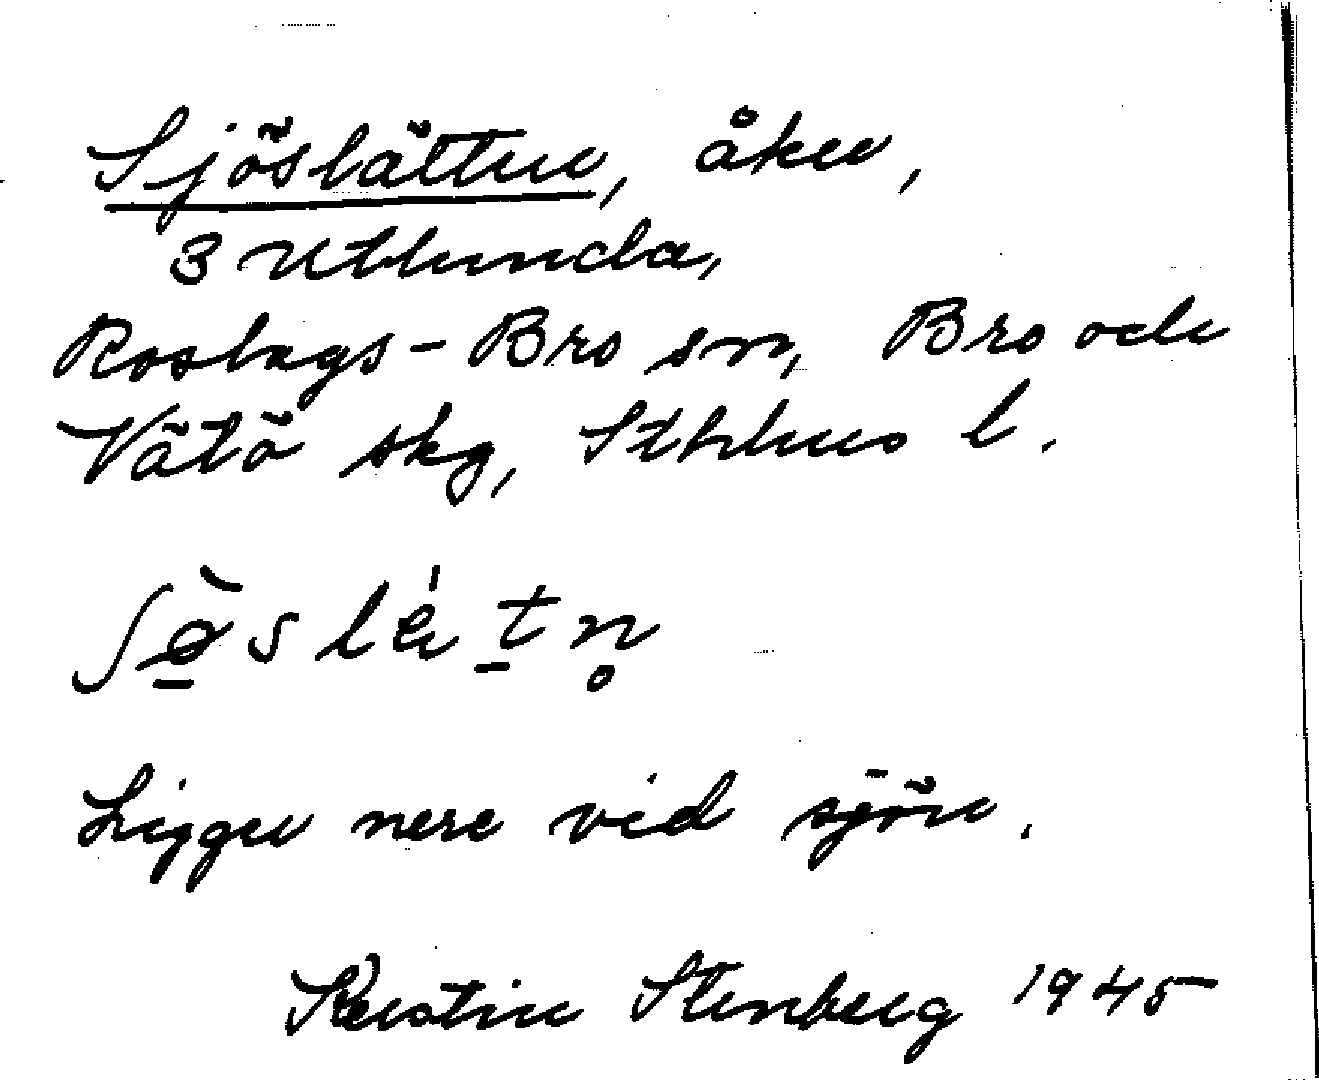 Sjöslätten, åker,
3 Utlunda,
Roslags-Bro sn, Bro och
Vätö skg, Sthlms l.
Ligger nere vid sjön.
Kerstin Stenberg 1945